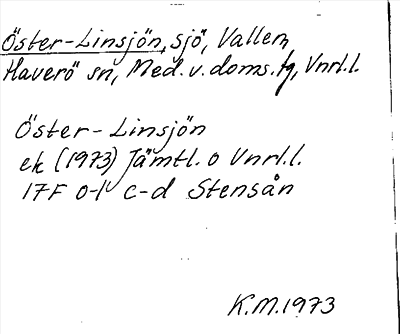 Öster-Linsjön, sjö, Vallen,
Haverö sn, Med.v.doms.tg, Vnrl.l.
Öster-Linsjön
ek (1973) Jämtl. o Vnrl.l.
17F 0-1 c-d Stensån
K.M.1973